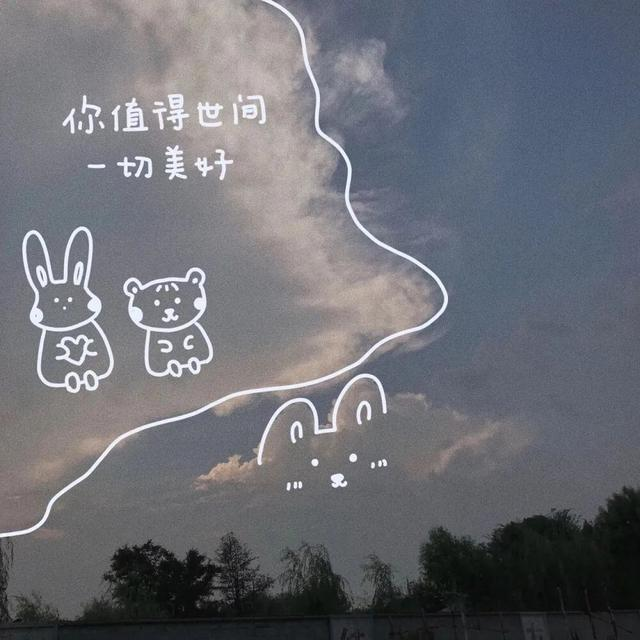 你值得世间
一切美好